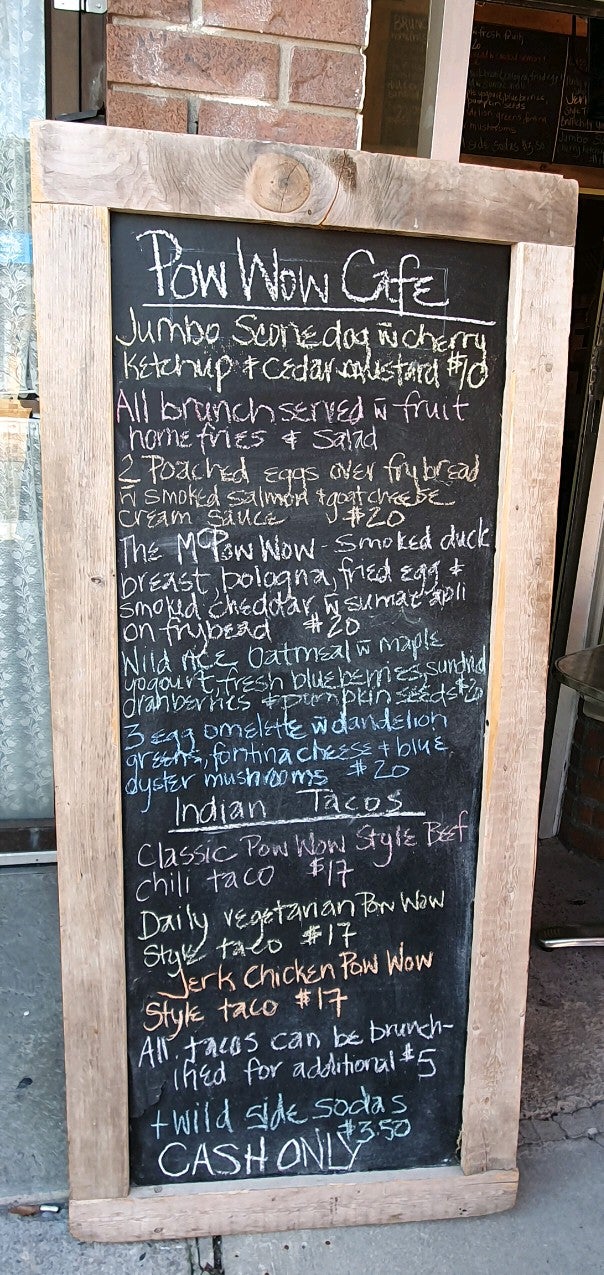 Pow Wow Cafe
Jumbo Sconedog w̄ cherry
Ketchup + cedar mustard $10
All brunch served w̄ fruit
home fries & Salad
2 Poached eggs over frybread
w̄ smoked salmon + goat cheese
cream sauce $20
The McPow Wow - Smoked duck
breast, bologna, fried egg +
smoked cheddar, w̄ sumac
on frybead $20
Wild rice Oatmeal w̄ maple
yogourt, fresh blueberries, sundried
cranberries + pumpkin seeds $20
3 egg omelette w̄ dandelion
greens, fontina cheese + blue
oyster mushrooms $20
Indian Tacos
Classic Pow Wow Style Beef
chili taco $17
Daily vegetarian Pow Wow
Style taco $17
Jerk Chicken Pow Wow
Style taco $17
All tacos can be brunch-
ified for additional $5
+ wild side sodas
$3.50
CASH ONLY